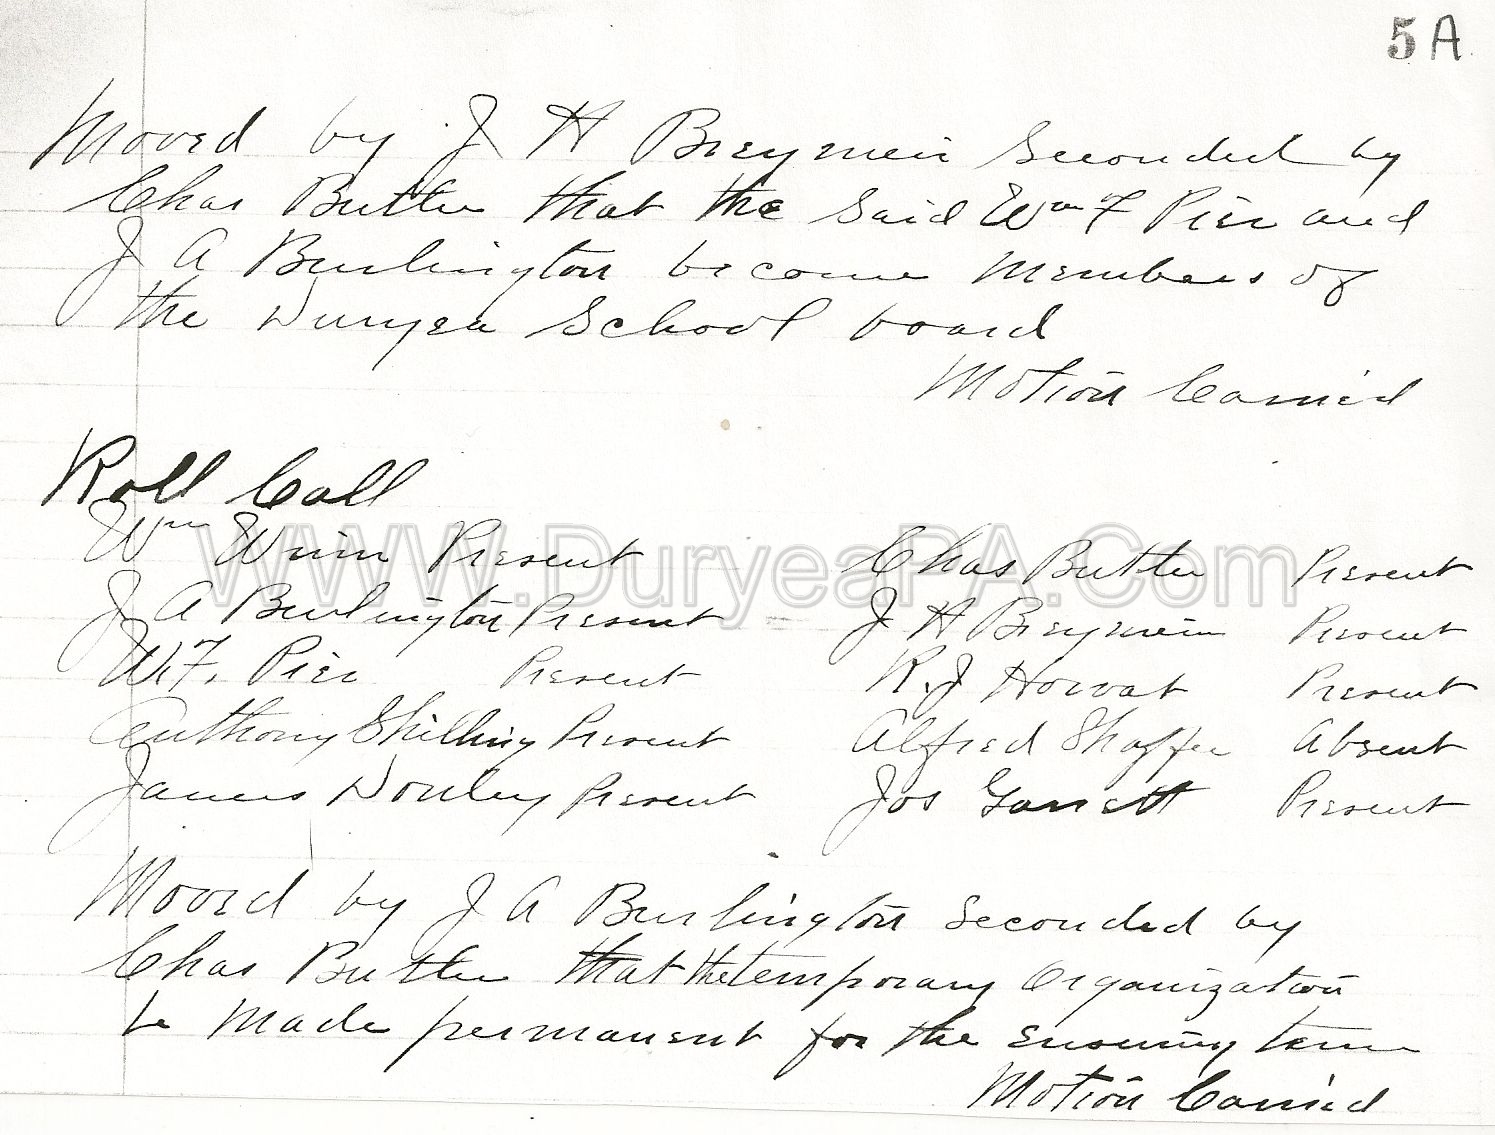 5A
Moved by J H Breymeir Seconded by
Chas Butler that the Said Wm F Pier and
J A Burlington become Members of
the Duryea School board
Motion Carried
Roll Call
Wm Winn Present Chas Butler Present
J A Burlington Present J H Breymeir Present
W.F. Pier Present R.J Horvat Present
Anthony Shilling Present Alfred Shaffer Absent
James Donley Present Jos Garrett Present
WWW.DuryeaPA.Com
Moved by J A Burlington Seconded by
Chas Butler that the temporary Organization
be Made permanent for the ensuing term
Motion Carried